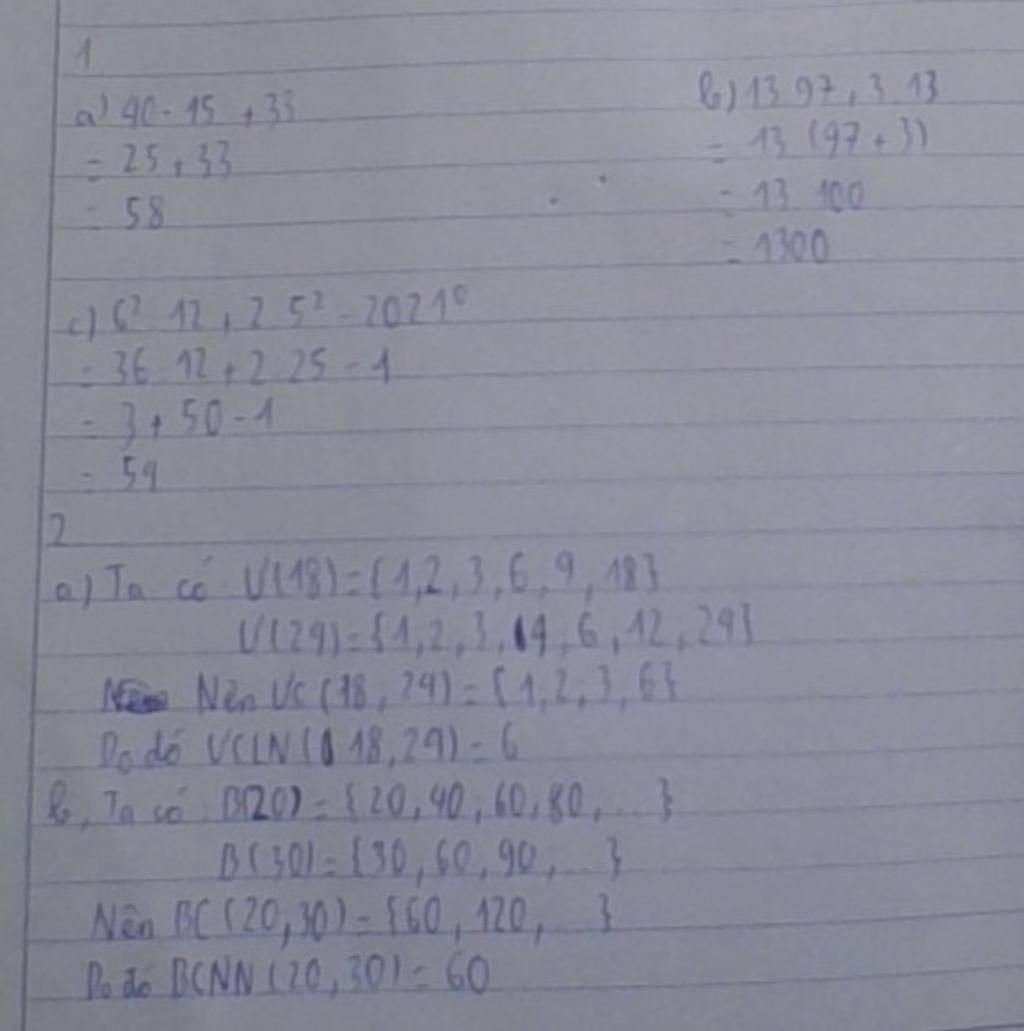 1
a) 40 - 15 + 33
= 25 + 33
= 58
b) 13 97 + 3 13
= 13 (97 + 3)
= 13 100
= 1300
c) 6² 12 + 2 5² - 2021⁰
= 36 12 + 2 25 - 1
= 3 + 50 - 1
= 54
2
a) Ta có Ư(18) = {1, 2, 3, 6, 9, 18}
Ư(24) = {1, 2, 3, 4, 6, 12, 24}
Nên ƯC (18, 24) = {1, 2, 3, 6}
Do đó ƯCLN (18, 24) = 6
b, Ta có B(20) = {20, 40, 60, 80, ...}
B(30) = {30, 60, 90, ...}
Nên BC (20, 30) = {60, 120, }
Do đó BCNN (20, 30) = 60